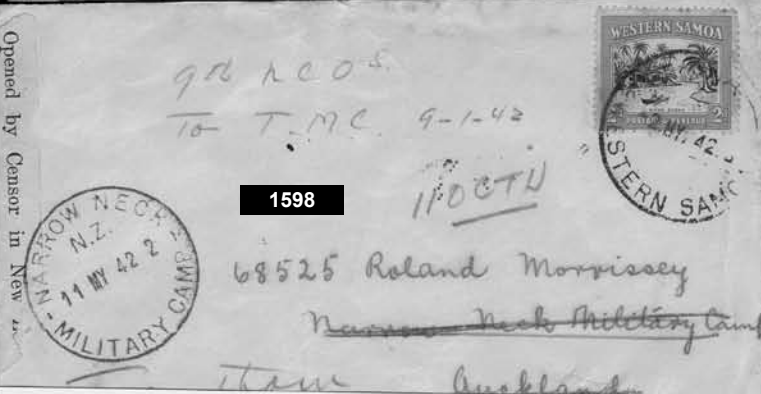 Opened by Censor in New
WESTERN SAMOA
POSTAGE & REVENUE
2d
MY. 42
WESTERN SAMOA
9th N.C.O's.
To T.M.C. 9-1-42
11 OCTU
1598
NARROW NECK
N.Z.
11 MY 42 2
MILITARY CAMP
68525 Roland Morrissey
Narrow Neck Military Camp
Auckland